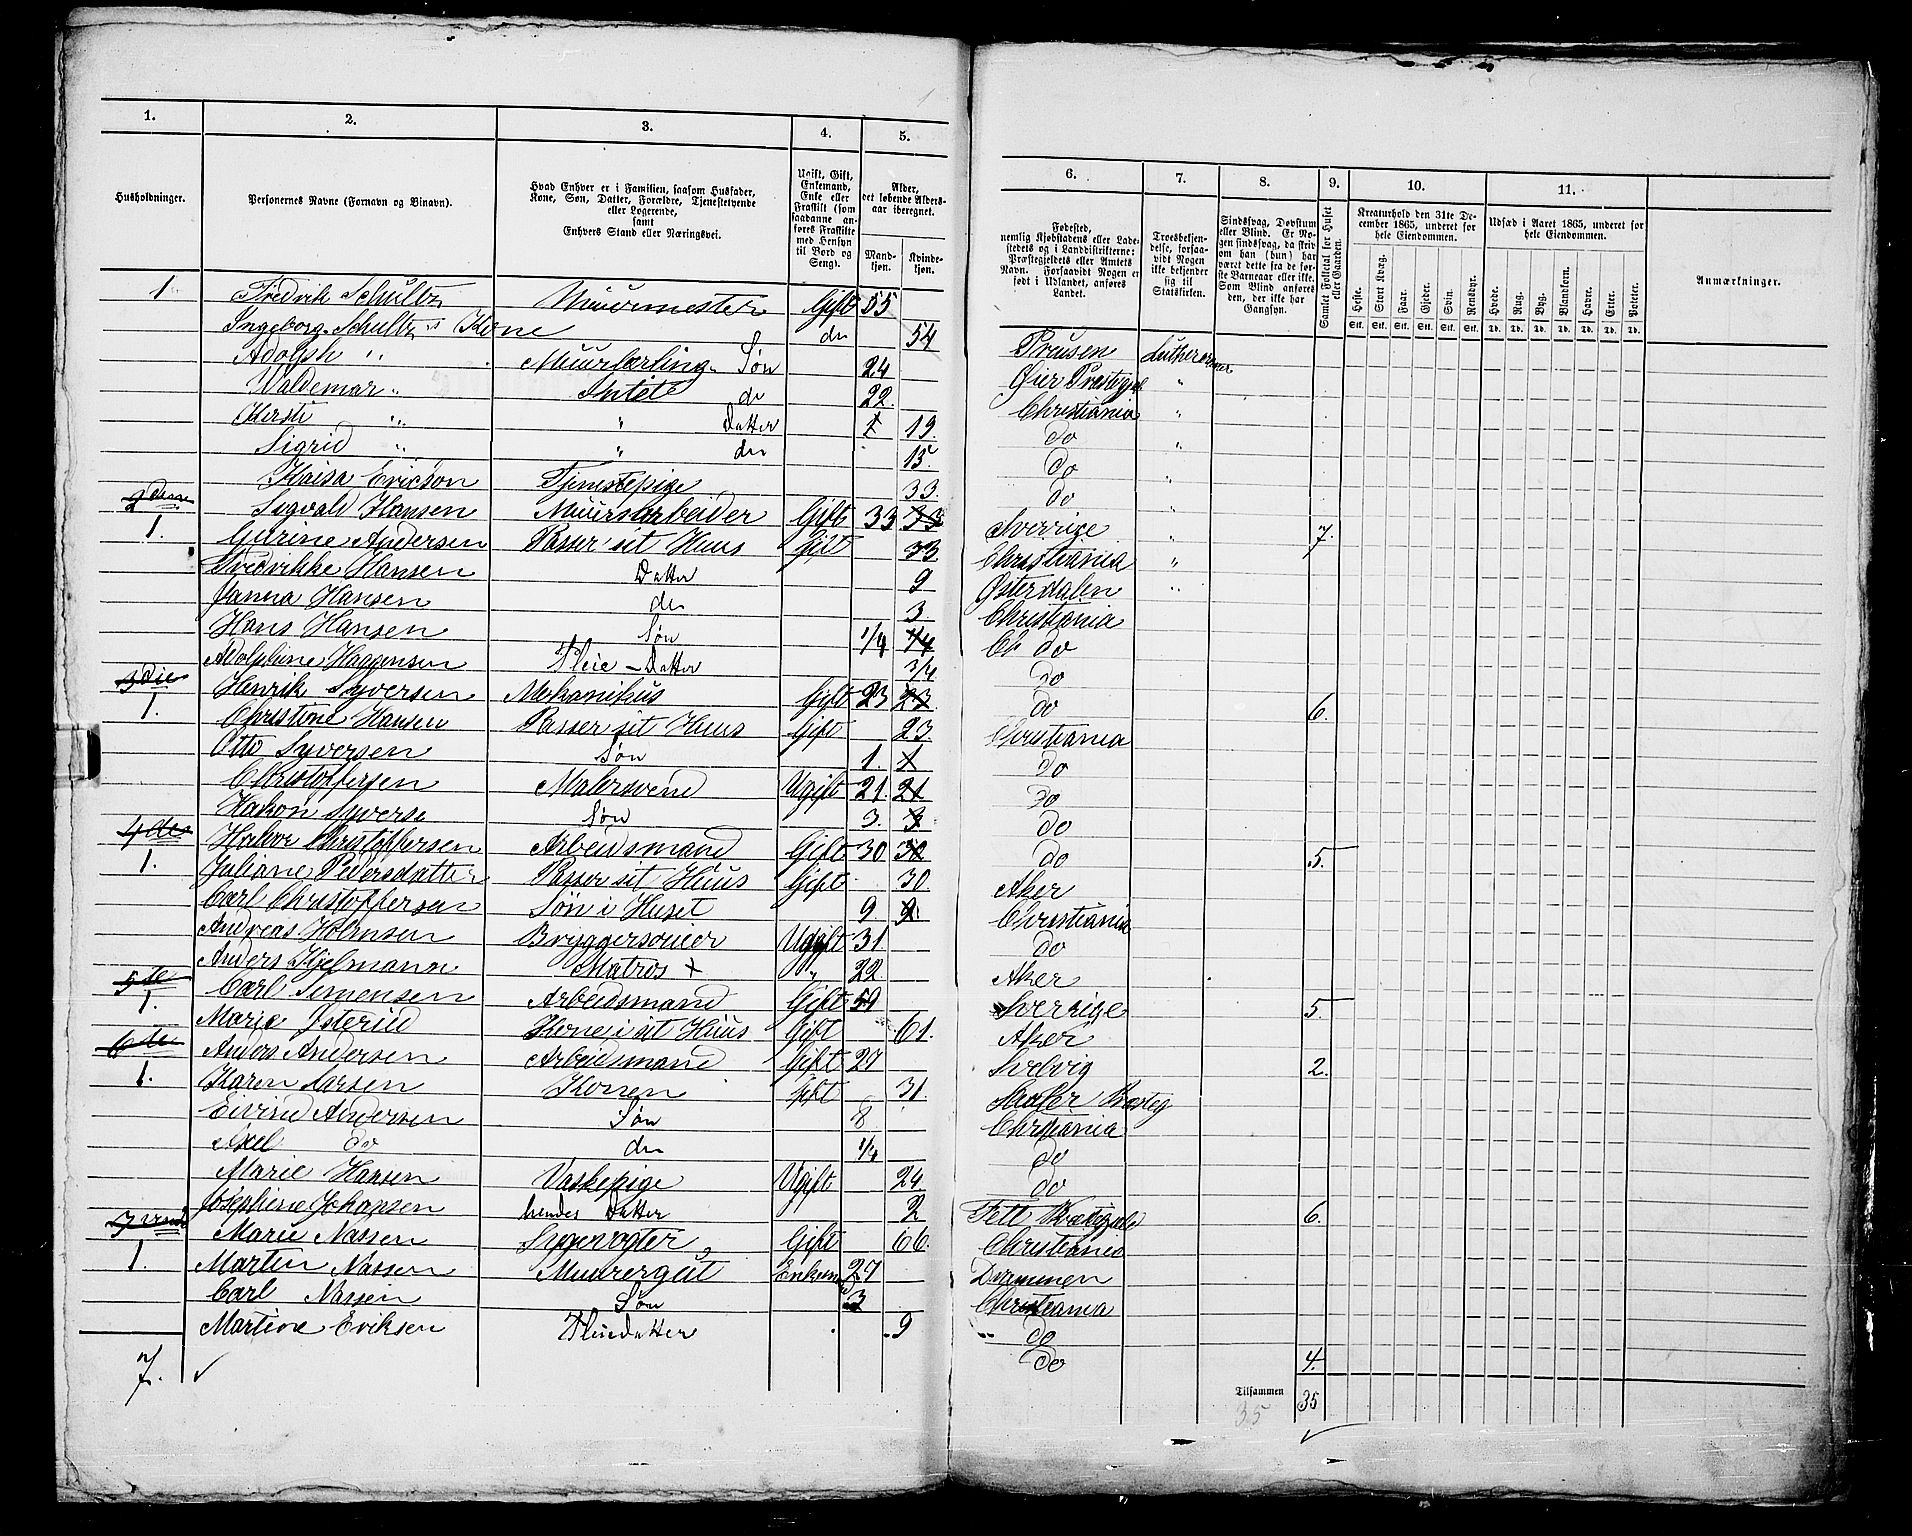 1. 2. 3. 4. 5.
Husholdninger.
Personernes Navne (Fornavn og Binavn).
Hvad Enhver er i Familien, saasom Husfader, Kone, Søn, Datter, Forældre, Tjenestetyende eller Logerende, samt Enhvers Stand eller Næringsvei.
Ugift, Gift, Enkemand, Enke eller Fraskilt (som saadanne anføres Fraskilte med Hensyn til Bord og Seng).
Alder, det løbende Aldersaar iberegnet.
Mandkjøn. Kvindekjøn.
1 Fredrik Schultz Muurmester Gift 55
Ingeborg Schultz's Kone do 54
Adolph " Muurlærling Søn 24
Waldemar " Intet do 22
Kirsti " " Datter 1 19
Sigrid " " do 15
Kaisa Ericson Tjenestepige 33
Sigvald Hansen Muurarbeider Gift 33 33
1. Gurine Andersen Passer sit Huus Gift 33
Fredrikke Hansen Datter 9
Janna Hansen do 3
Hans Hansen Søn 1/4 1/4
Adolphine Haagensen Pleie-Datter 3/4
3die Henrik Syversen Mekanikus Gift 23 23
1. Christine Hansen Passer sit Huus Gift 23
Otto Syversen Søn 1. 1
Christoffersen Malersvend Ugift 21. 21
Hakon Syverse Søn 3. 3
4de Christoffersen Arbeidsmand Gift 30 30
1. Juliane Pedersdatter Passer sit Huus Gift 30.
Carl Christoffersen Søn i Huset 9 9
Andreas Ugift 31
Anders Hjelmann Matros x " 22
5te Carl Simensen Arbeidsmand Gift 59
1. Marie Kone i sit Huus Gift 61.
6te Anders Andersen Arbeidsmand Gift 27
1. Karen Larsen Konen Gift 31.
Eivind Andersen Søn 8
Axel do do 1/4
Marie Hansen Vaskepige Ugift 24
Josephine Johansen hendes Datter 2
Marie Nassen Gift 66.
1. Martin Nassen Muurergut Enkem 27
Carl Nassen Søn 3
Martine Eriksen Pleiedatter 9
7. ✓
6. 7. 8. 9. 10. 11.
Fødested, nemlig Kjøbstadens eller Ladestedets og i Landdistrikterne: Præstegjeldets eller Amtets Navn. Forsaavidt Nogen er født i Udlandet, anføres Landet.
Troesbekjendelse, forsaavidt Nogen ikke bekjender sig til Statskirken.
Sindssvag, Døvstum eller Blind. Er Nogen sindssvag, da skrives om han (hun) har været dette fra de første Barneaar eller ikke. Som Blind anføres den, der ikke har Gangsyn.
Samlet Folketal for Huset eller Gaarden.
Kreaturhold den 31te December 1865, underet for hele Eiendommen.
Heste. Stort Kvæg. Faar. Gjeder. Svin. Rensdyr.
Stk. Stk. Stk. Stk. Stk. Stk.
Udsæd i Aaret 1865, underet for hele Eiendommen.
Hvede. Rug. Byg. Blandkorn. Havre. Erter. Poteter.
Td. Td. Td. Td. Td. Td. Td.
Anmærkninger.
Preusen Lutheraner
Øier Præstegjel "
Christiania "
do "
do "
do "
Sverrige " 7.
Christiania "
Østerdalen "
Christiania
do
do
do 6.
Christiania
do
do
do
do 5.
Aker
Christiania
do
Aker
Sverrige 5.
Aker
Svelvig 2.
Præsteg
Christiania
do
do
Fett Præstegjeld 6.
Christiania
Drammen
Christiania
do
do 4.
Tilsammen 35
35 ✓